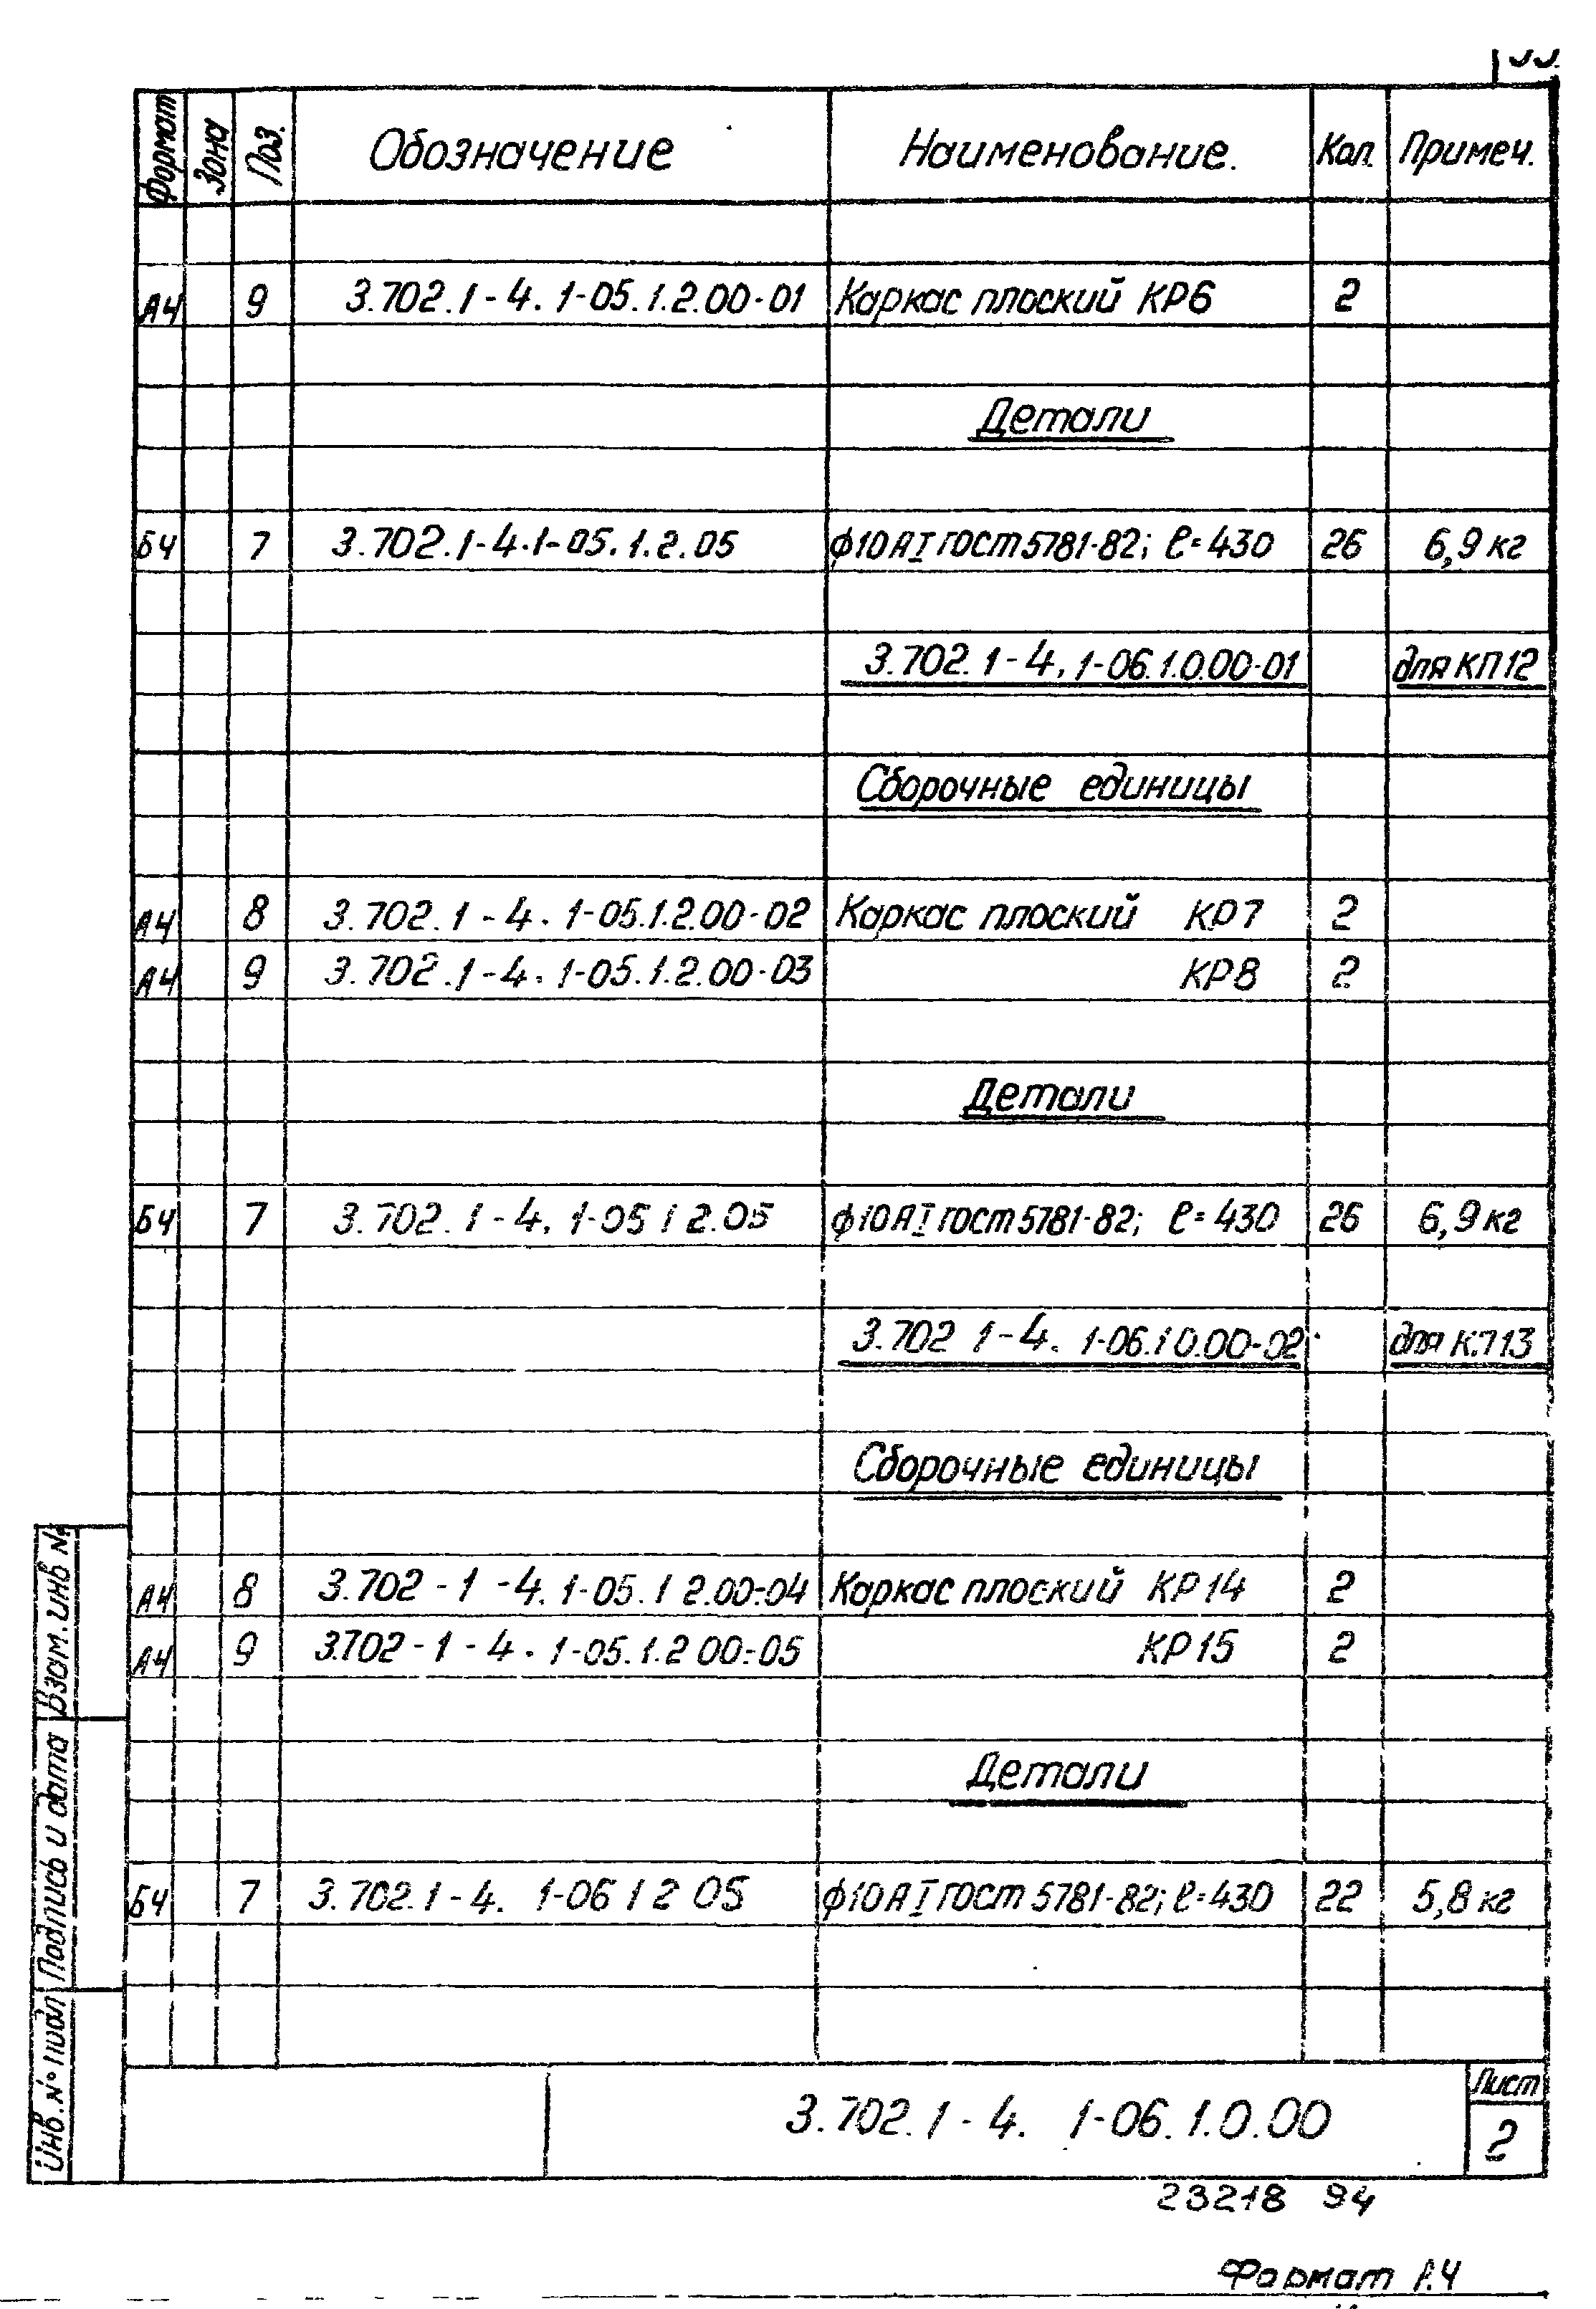 Формат Зона Поз. Обозначение Наименование. Кол. Примеч.
А4 9 3.702.1-4.1-05.1.2.00-01 Каркас плоский КР6 2
Детали
Б4 7 3.702.1-4.1-05.1.2.05 ф10АI ГОСТ 5781-82; ℓ=430 26 6,9 кг
3.702.1-4.1-06.1.0.00-01 для КП12
Сборочные единицы
А4 8 3.702.1-4.1-05.1.2.00-02 Каркас плоский КР7 2
А4 9 3.702.1-4.1-05.1.2.00-03 КР8 2
Детали
Б4 7 3.702.1-4.1-05 1 2.05 ф10АI ГОСТ 5781-82; ℓ=430 26 6,9 кг
3.702 1-4. 1-06.1 0.00-02 для КП13
Сборочные единицы
А4 8 3.702-1-4.1-05.1 2.00-04 Каркас плоский КР14 2
А4 9 3.702-1-4.1-05.1.2 00-05 КР15 2
Детали
Б4 7 3.702.1-4. 1-06 1 2 05 ф10АI ГОСТ 5781-82; ℓ=430 22 5,8 кг
Взам. инв №
Подпись и дата
Инв. № подл
3.702.1-4. 1-06.1.0.00
Лист
2
23218 94
Формат А4